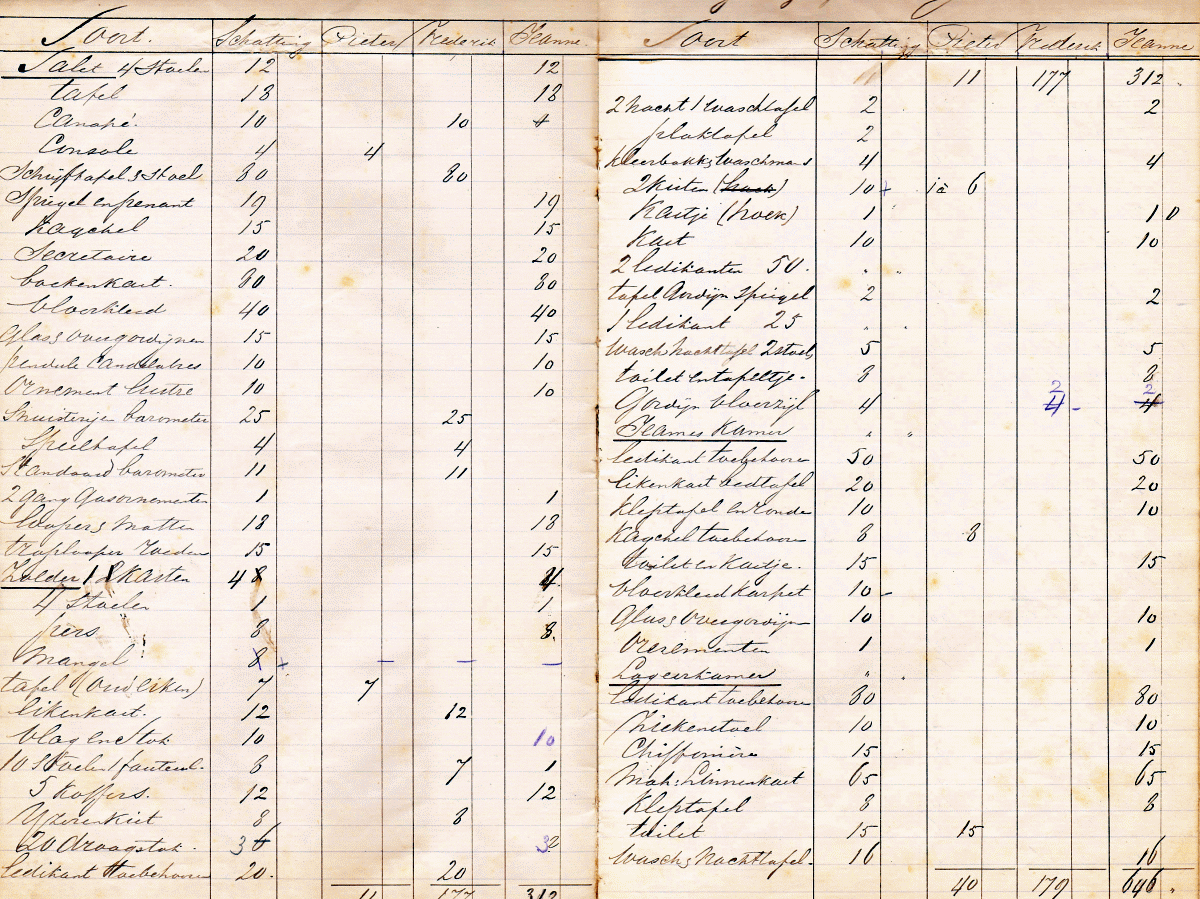 Soort. Schatting Pieter Frederik Jeanne.
Salet 4 Stoelen 12 12
tafel 18 18
Canapé. 10 10
Console 4 4
Schrijftafel & Stoel 80 80
Spiegel en penant 19 19
Kagchel 15 15
Secretaire 20 20
boekenkast. 80 80
Vloerkleed 40 40
Glas & overgordijnen 15 15
pendule Candelabres 10 10
Ornement lustre 10 10
Snuisterijen barometer 25 25
Speeltafel 4 4
Standaard barometer 11 11
2 gang Gasornementen 1 1
loopers Matten 18 18
traplooper roeden 15 15
Zolder 1 Kasten 4 4
4 Stoelen 1 1
pers 8 8.
Mangel 8 + – – –
tafel (Oud eiken) 7 7
Eikenkast. 12 12
Vlag en Stok 10 10
10 Stoelen 1 fauteuil. 8 7 1
5 Koffers. 12 12
Yzeren Kist 8 8
20 draagstok. 3
ledikant toebehooren 20. 20
11 177 312
Soort Schatting Pieter Frederik Jeanne
11 177 312
2 nacht 1 waschtafel 2 2
plaktafel 2
Kleerbak & Waschmand 4 4
2 Kisten (hoek) 10 + 6
Kastje (hoek) 1 1 0
Kast 10 10
2 ledikanten 50. " "
tafel Gordijn Spiegel 2 2
1 ledikant 25 " "
Wasch Nachttafel 2 stoel 5 5
toilet en tafeltje. 8 8
Gordijn Vloerzijl 4 2 4 – 2 4
Jeannes Kamer " "
ledikant toebehooren 50 50
Eikenkast 20 20
Kleptafel en ronde 10 10
Kagchel toebehooren 8 8
toilet en Kastje. 15 15
Vloerkleed Karpet 10 –
Glas & Overgordijn 10 10
Ornementen 1 1
Logeerkamer " .
ledikant toebehooren 80 80
Ziekenstoel 10 10
Chiffonière 15 15
Mah: Linnenkast 65 65
Kleptafel 8 8
toilet 15 15
Wasch & Nachttafel. 16 16
40 179 646 "